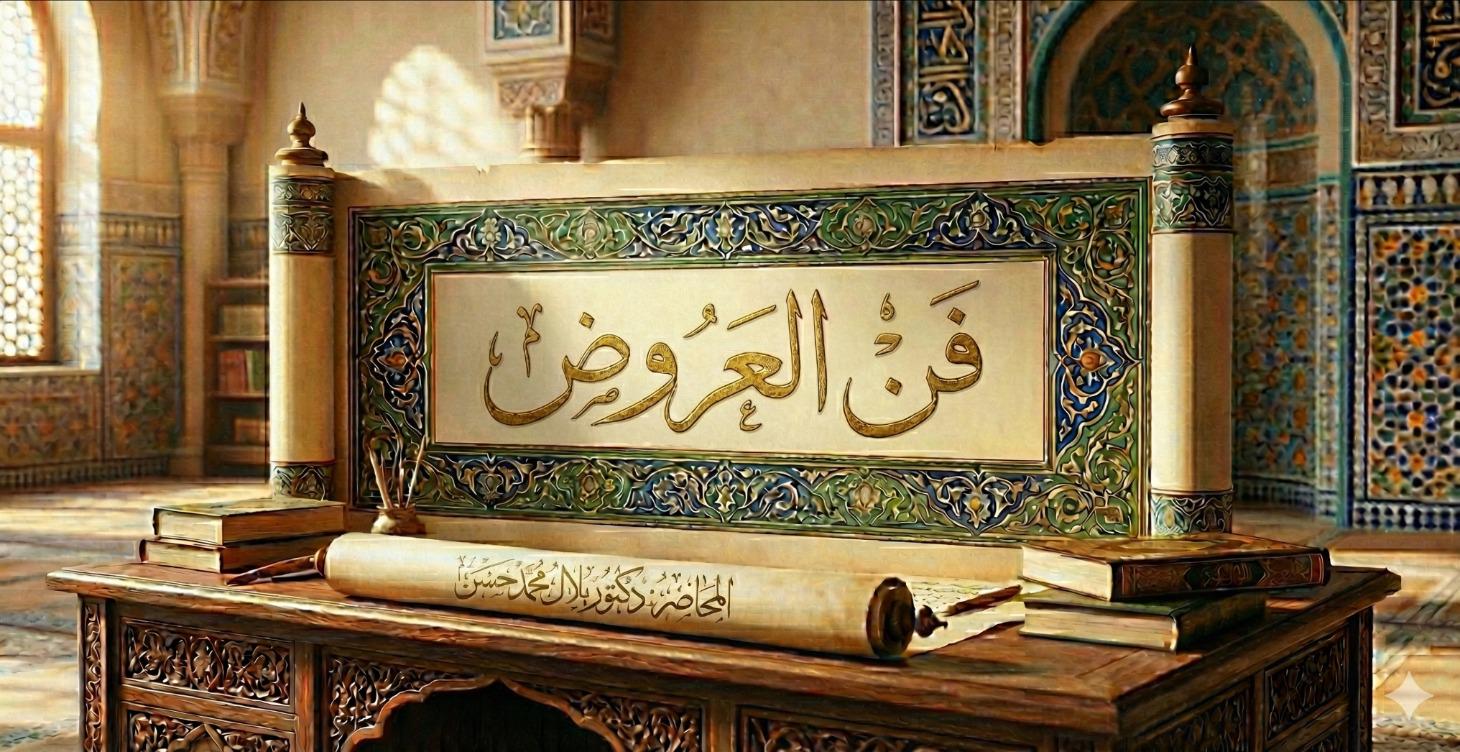 فَنْ العَرُوض
المحاضر: دكتور بلال محمّد حسن